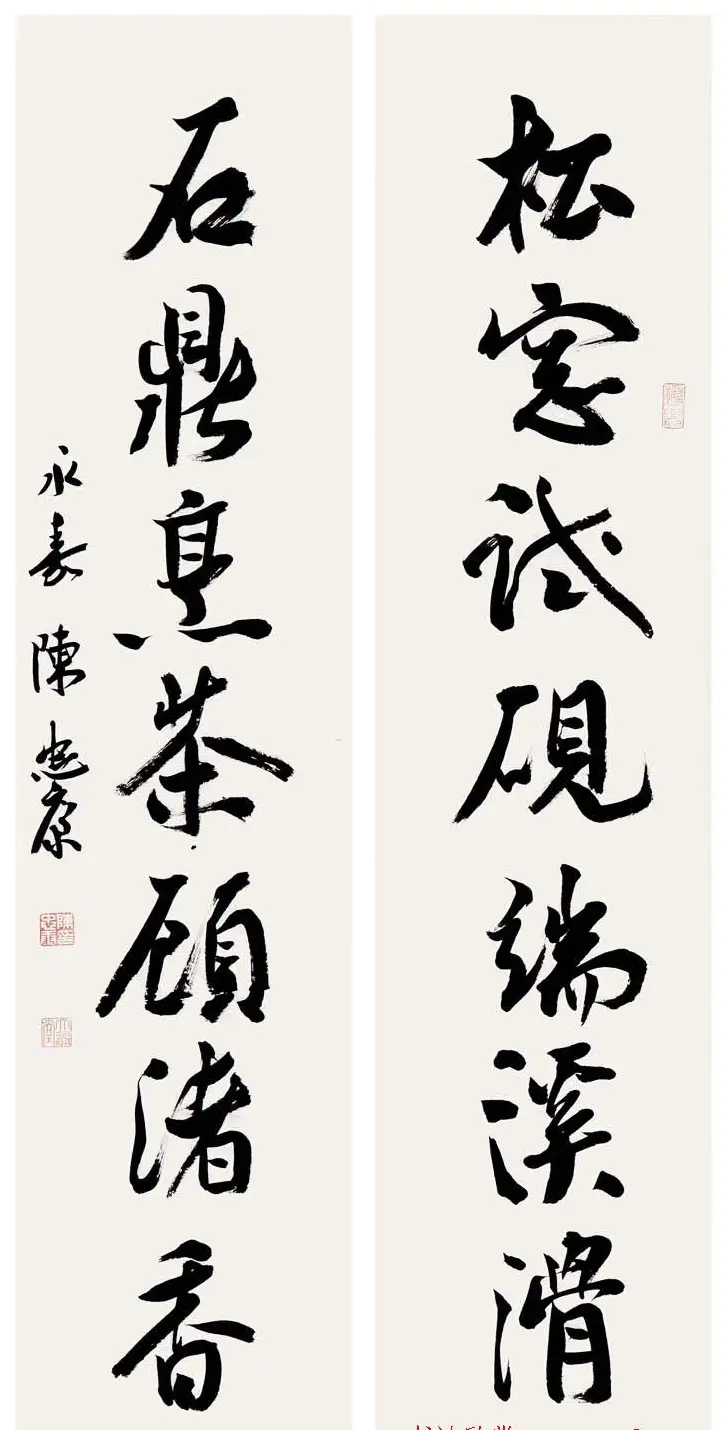 松窓試硯端溪滑
石鼎烹茶顧渚香
永嘉陳忠康